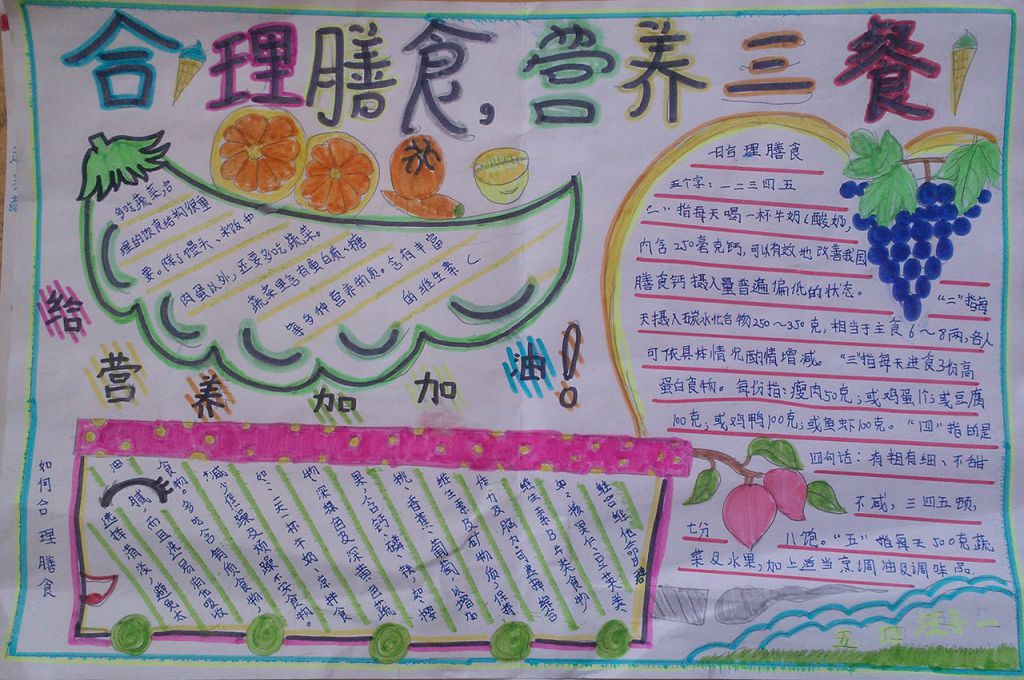 合理膳食,营养三餐
多吃蔬菜,合
理的饮食结构很重
要。除了馒头、米饭和
肉蛋以外,还要多吃蔬菜。
蔬菜里含有蛋白质、糖
等多种营养物质。含有丰富
的维生素C
给营养加加油!
合理膳食
五个字:一二三四五
“一”指每天喝一杯牛奶(酸奶,
内含250毫克钙,可以有效地改善我国
膳食钙摄入量普遍偏低的状态。
“二”指每
天摄入碳水化合物250~350克,相当于主食6~8两,各人
可依具体情况酌情增减。“三”指每天进食3份高
蛋白食物。每份指:瘦肉50克;或鸡蛋1个;或豆腐
100克;或鸡鸭100克;或鱼虾100克。“四”指的是
四句话:有粗有细、不甜
不咸,三四五顿,
七分
八饱。“五”指每天500克蔬
菜及水果,加上适当烹调油及调味品.
如何合理膳食
综合维他命
维生素B片类食物
性力及脑力.可选择综合
维生素及矿物质,保持
桃、香蕉、葡萄,以增加
果,含钙、磷、铁,如樱
物,深绿色及深黄
如:一天一杯牛奶,
减少焦躁及烦躁不安食物。
食物。多吃含有钙质食物,
油
腻,而且进易消化吸收
选择清淡,避免太
五 四